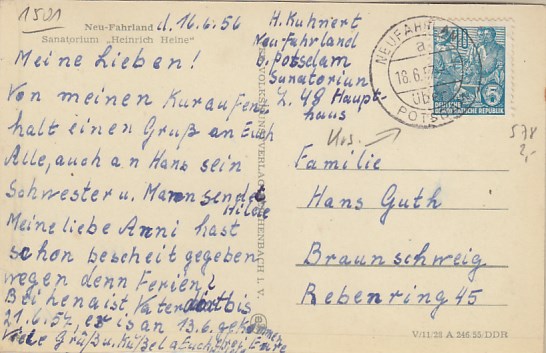 1501
Neu-Fahrland d. 16.6.56
Sanatorium „Heinrich Heine"
Meine Lieben!
Von meinen Kuraufent
halt einen Gruß an Euch
Alle, auch an Hans sein
Schwester u. Mann sendet
Hilde
Meine liebe Anni hast
schon bescheit gegeben
wegen denn Ferien?
Bei hena ist Vater dort bis
21.6.57, er is an 13.6. gekommen
Viele Grüße u. Küße a Euch Drei Eure
H. Kuhnert
Neu-Fahrland
b. Potsdam
Sanatorium
Z. 48 Haupt-
haus
VOLKSKUNSTVERLAG REICHENBACH I. V.
NEUFAHRLAND
a
18.6.5
ÜB
POTSDAM
10
5
DEUTSCHE
DEMOKRATISCHE REPUBLIK
578
2,-
Familie
Hans Guth
Braunschweig
Rebenring 45
V/11/28 A 246/55/DDR